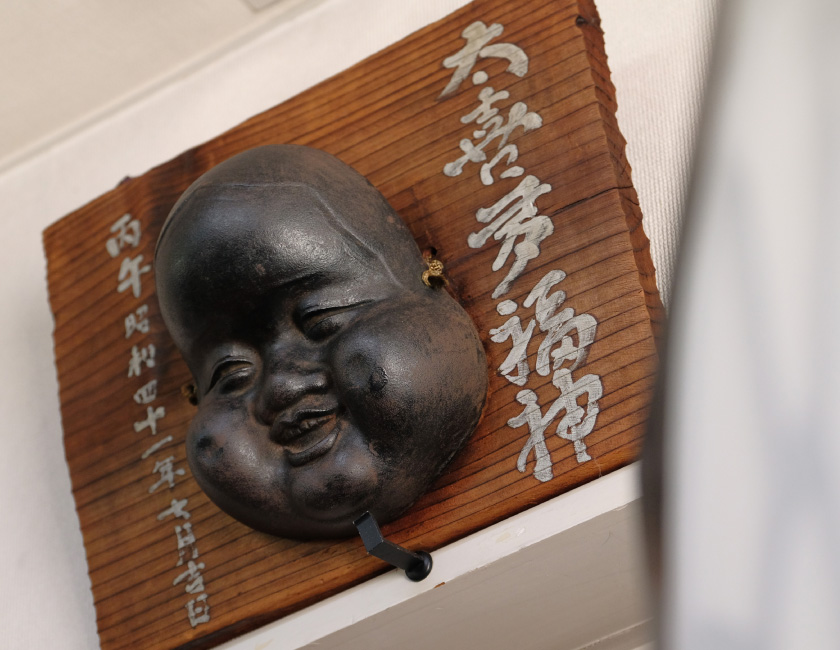 大喜多福神
丙午 昭和四十一年 七月吉日